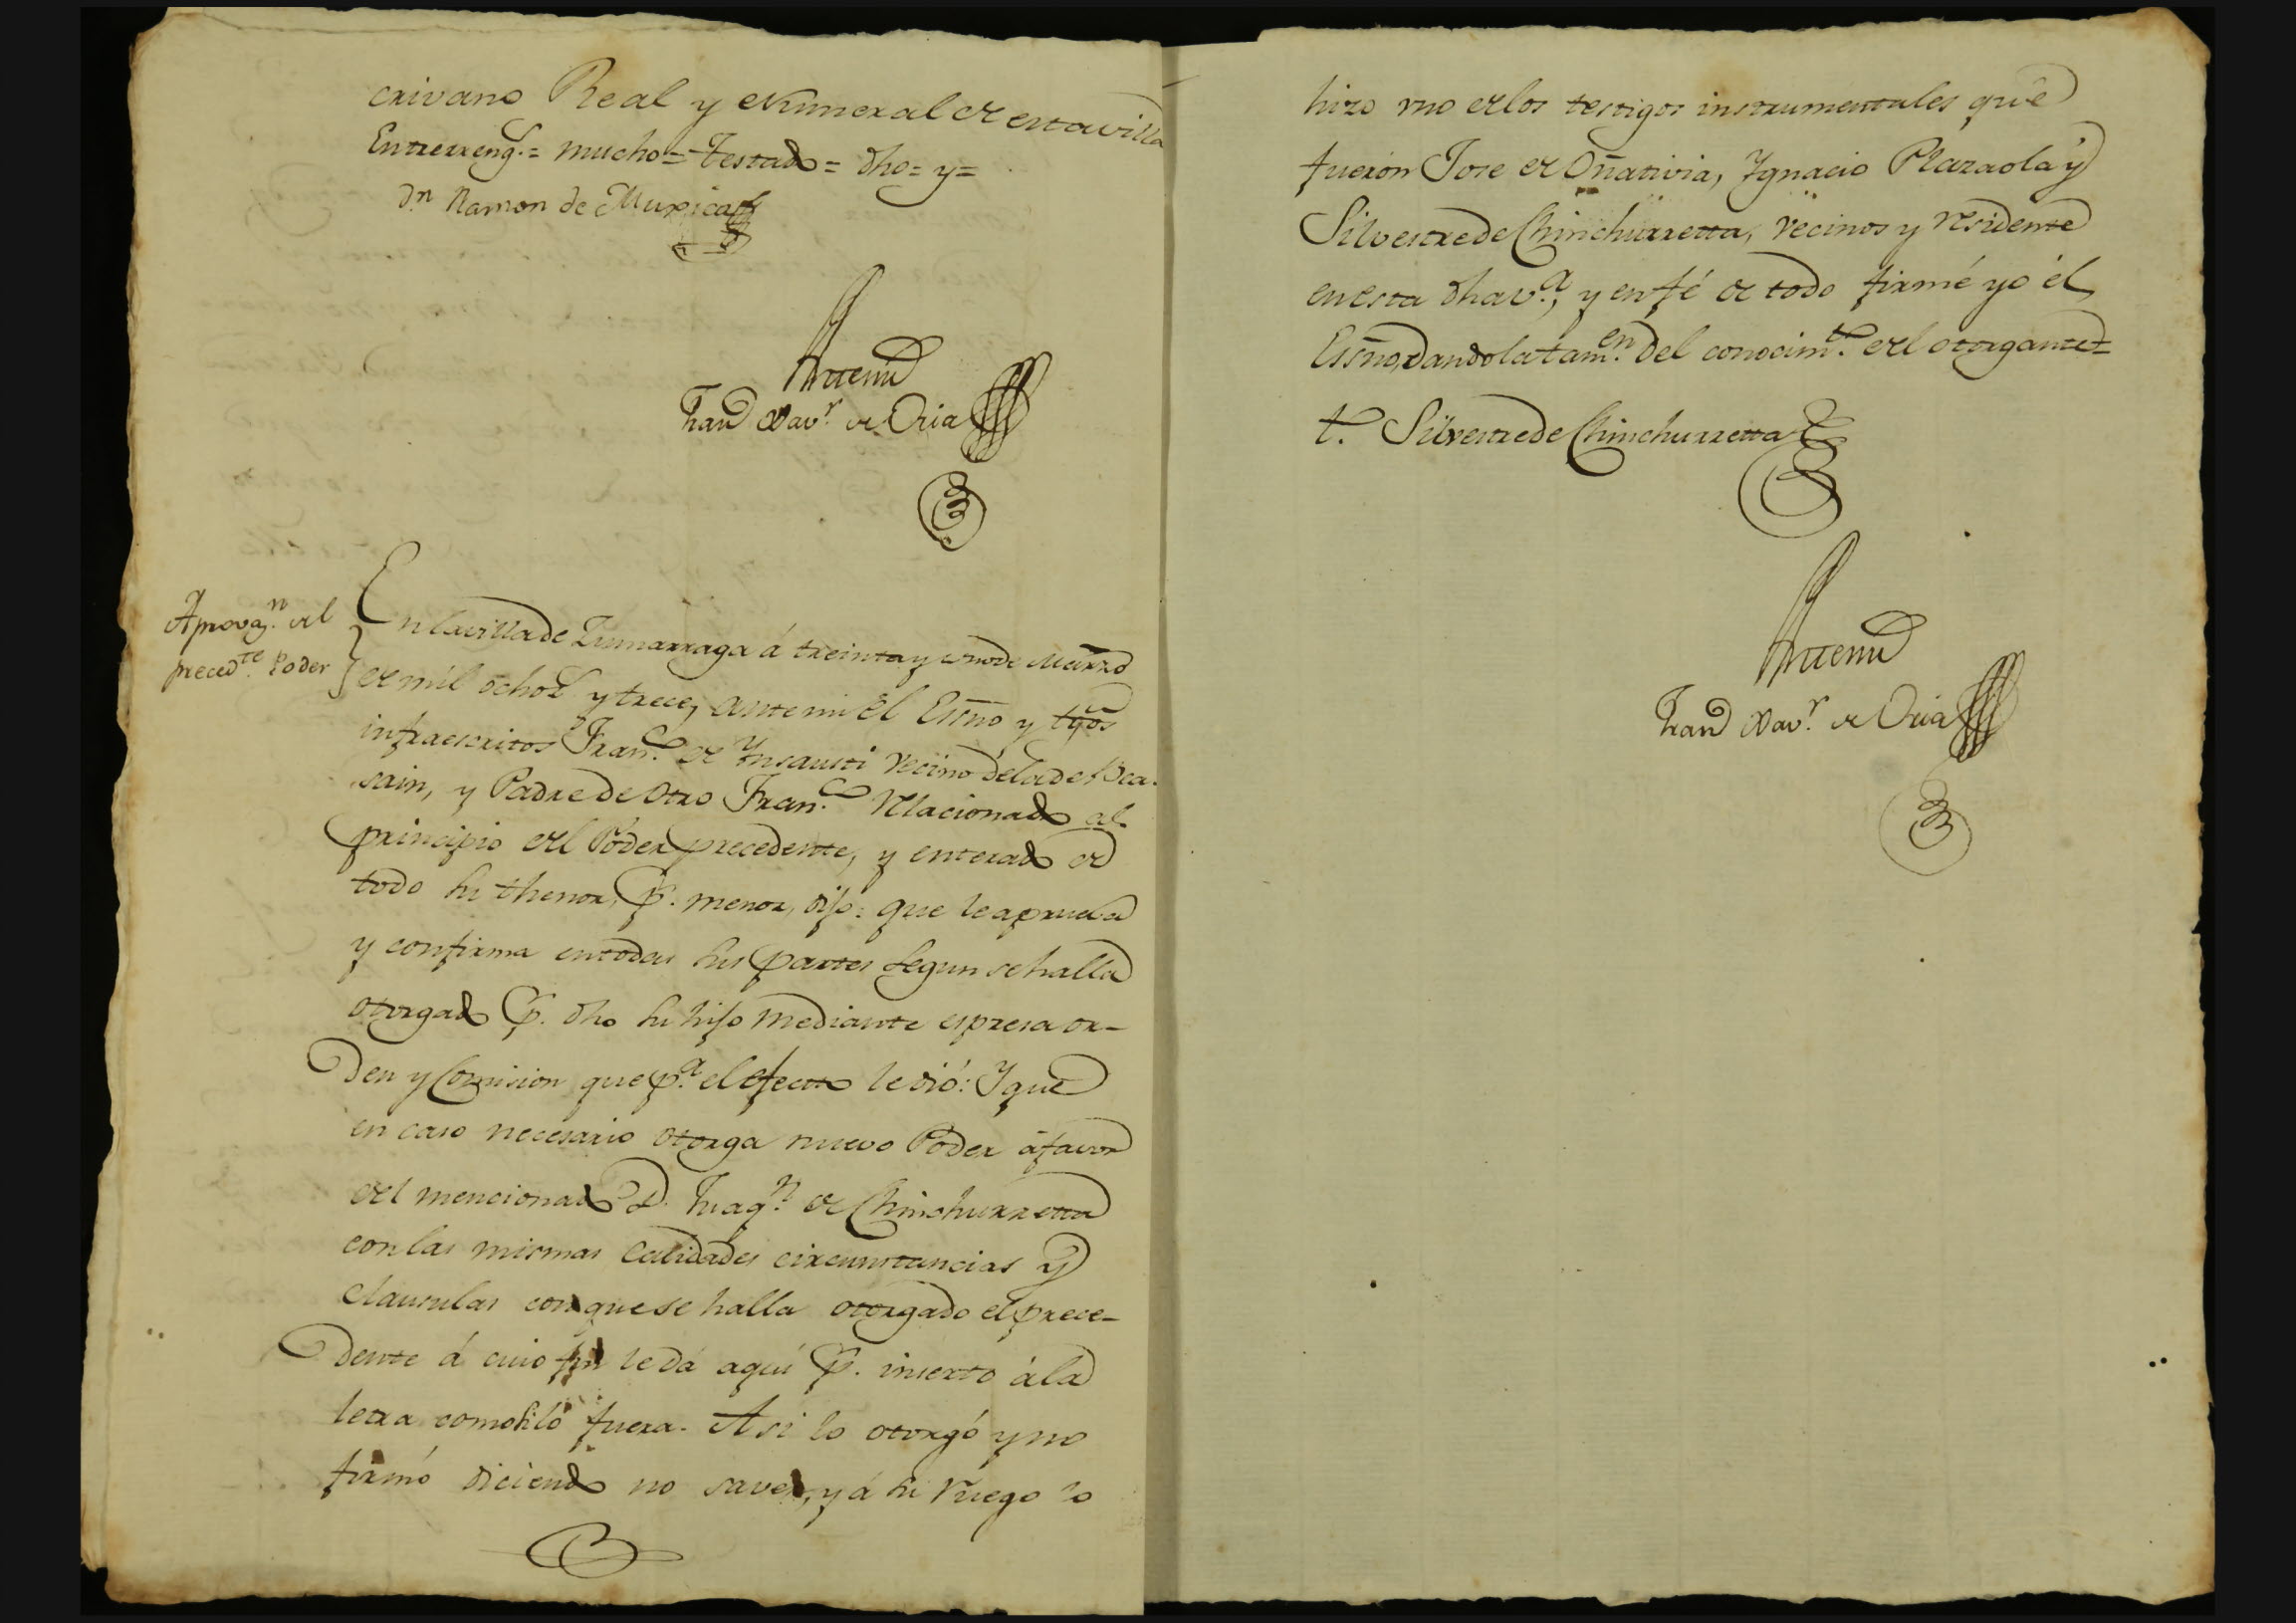 crivano Real y Numeral de esta villa
Entrerreng.s = mucho = Testado = dho = y =
Dn Ramon de Muxica
Antemi
Fran.co Xav.r de Oria
Aprovaz.n del
preced.te Poder
En la villa de Zumarraga á treinta y uno de Marzo
de mil ochoz.s y trece, ante mi el Essno y tgos
infraescritos Fran.co de Ynsausti vecino de la de Bea-
sain, y Padre de otro Fran.co relacionado al
principio del Poder precedente, y enterado de
todo su thenor, p.r menor, dijo: que le aprueba
y confirma en todas sus partes segun se halla
otorgado p.r dho su hijo mediante espresa or-
den y Comision que p.a el efecto le dió: Y que
en caso necesario otorga nuevo Poder á favor
del mencionado D. Juaq.n de Chinchurretta
con las mismas calidades circunstancias y
clausulas con que se halla otorgado el prece-
dente á cuio fin le dá aquí p.r inserto á la
letra como si lo fuera. Asi lo otorgó y no
firmó diciendo no saver, y á su ruego lo
hizo uno de los testigos instrumentales que
fuerón Jose de Oñativia, Ygnacio Plazaola y
Silvestre de Chinchurretta, vecinos y residente
en esta dha v.a, y en fé de todo firmé yo el
Essno, dandola tam.en del conocim.to del otorgante =
t.o Silvestre de Chinchurretta
Antemi
Fran.co Xav.r de Oria